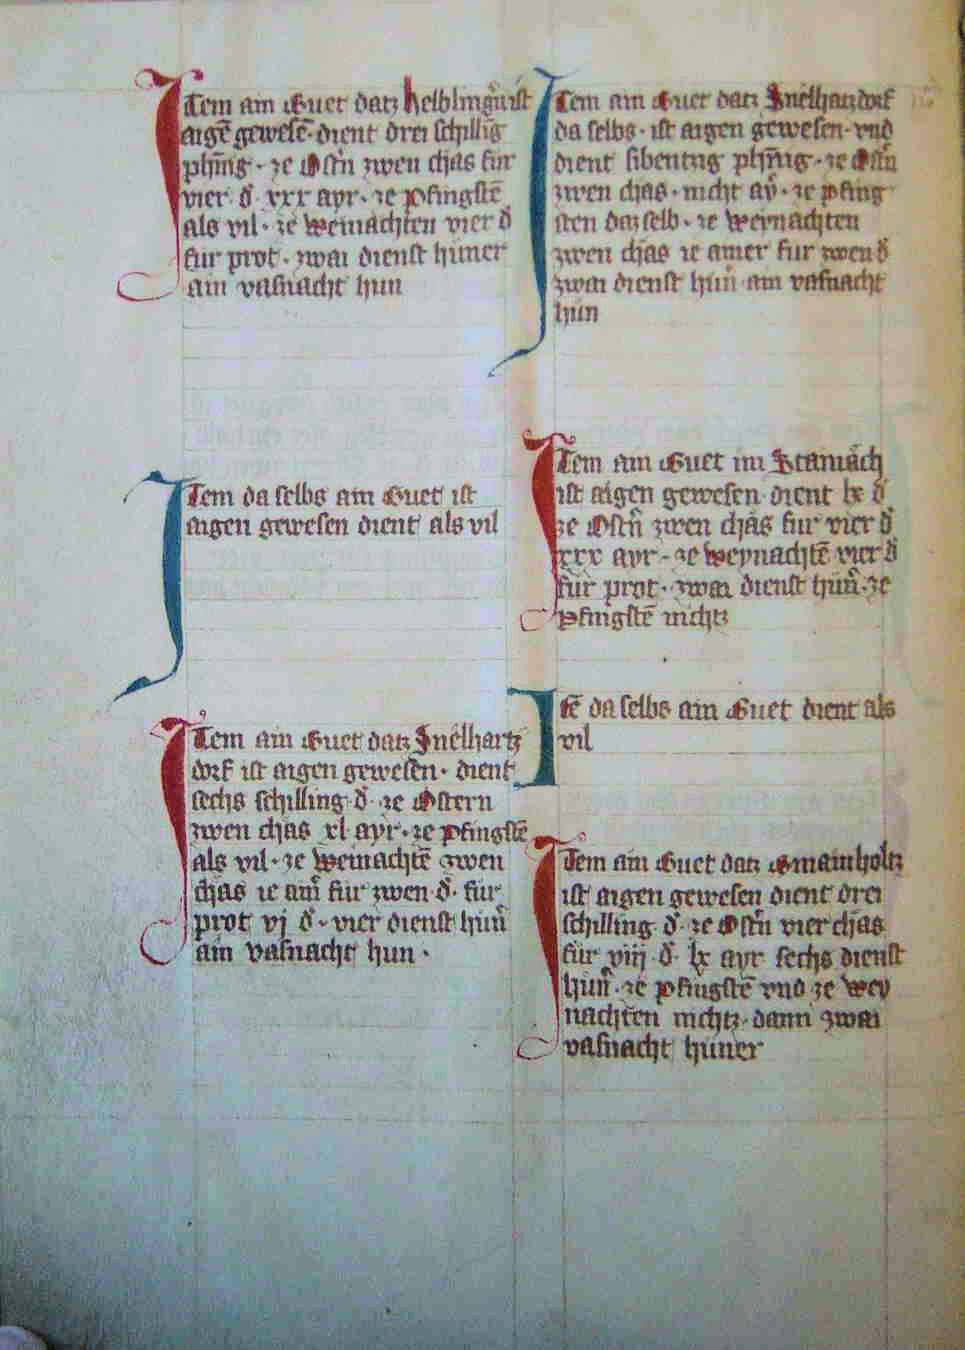 Item ain Guet datz Helbling᷑ ist
aigē gewesē · dient drei schillīg
phēīg · ze Ost̄n zwen chas für
vier ₰ xxx ayr · ze Pfingstē
als vil · ze weinachten vier ₰
für prot · zwai dienst hüner
ain vasnacht hün
Item da selbs ain Guet ist
aigen gewesen dient als vil
Item ain Guet datz Snelhartz
dorf ist aigen gewesen · dient
sechs schilling ₰ · ze Ostern
zwen chäs xl ayr · ze Pfingstē
als vil · ze weinachtē zwen
chäs ie am̄ für zwen ₰ · für
prot vj ₰ · vier dienst hün̄
ain vasnacht hün ·
Item ain Guet datz Snelhartzdorf
da selbs · ist aigen gewesen · vnd
dient sibentzg phēīg · ze Ost̄n
zwen chäs · nicht aȳ · ze pfing
sten daz selb · ze weynachten
zwen chäs ie ainer für zwen ₰
zwai dienst hün̄ · ain vasnacht
hün
Item ain Guet im Stainäch
ist aigen gewesen · dient lx ₰
ze Ost̄n zwen chäs für vier ₰
xxx ayr · ze weynachtē vier ₰
für prot · zwai dienst hün̄ · ze
Pfingstē nichtz
Itē da selbs ain Guet dient als
vil
Item ain Guet datz Gmainholtz
ist aigen gewesen dient drei
schilling ₰ · ze Ost̄n vier chäs
für viij ₰ · lx ayr sechs dienst
hün̄ · ze Pfingstē vnd ze wey
nachten nichtz · dann zwai
vasnacht hüner